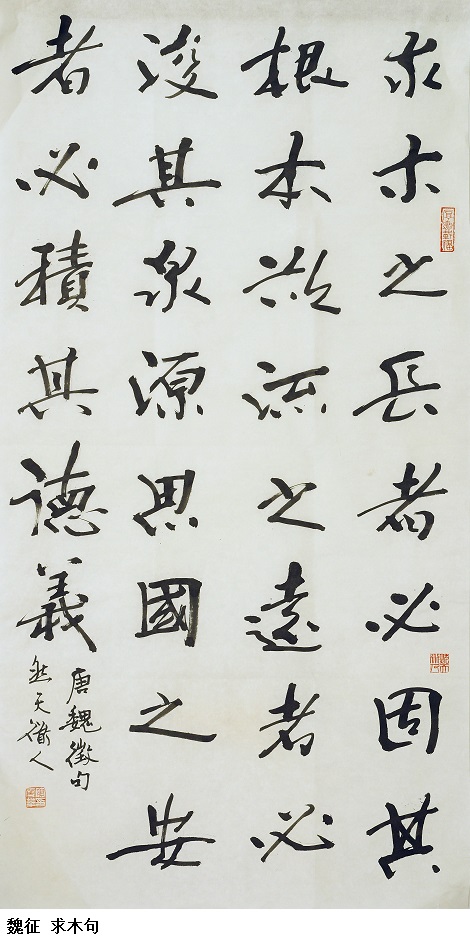 求木之長者必固其
根本欲流之遠者必
浚其泉源思國之安
者必積其德義
唐魏徵句
天人
魏征 求木句